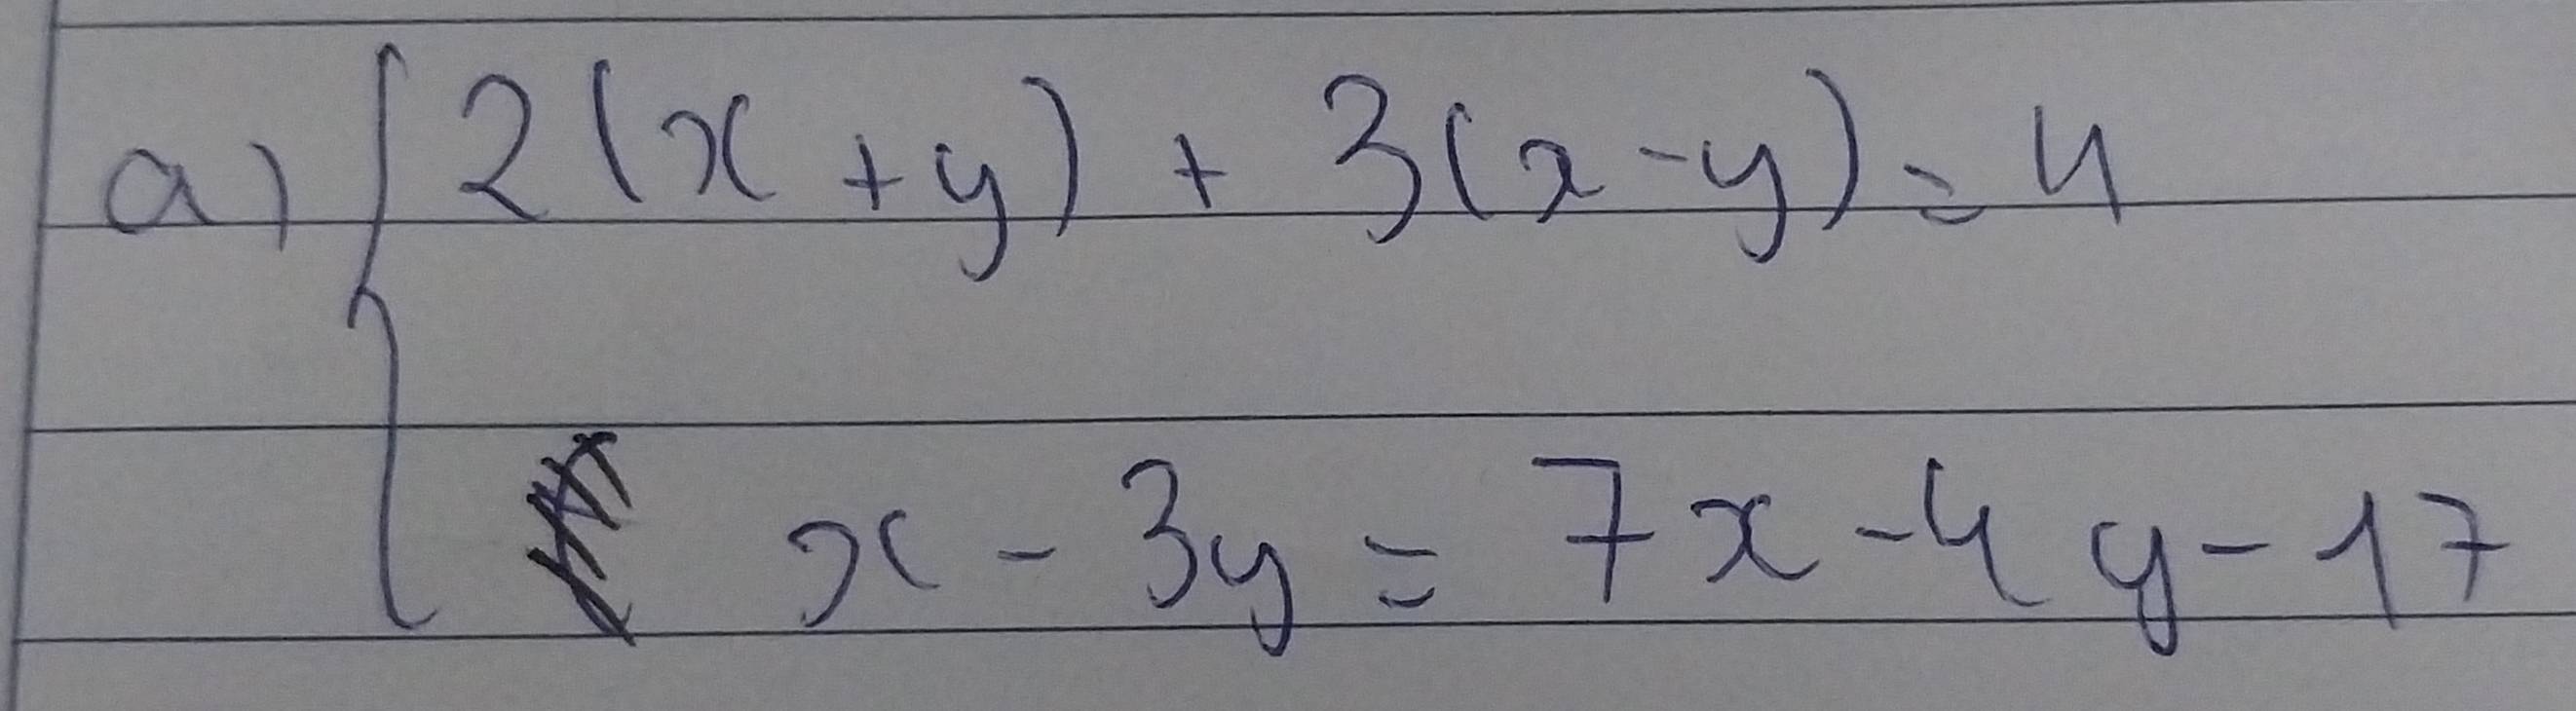 a) { 2(x + y) + 3(x - y) = 4
x - 3y = 7x - 4y - 17